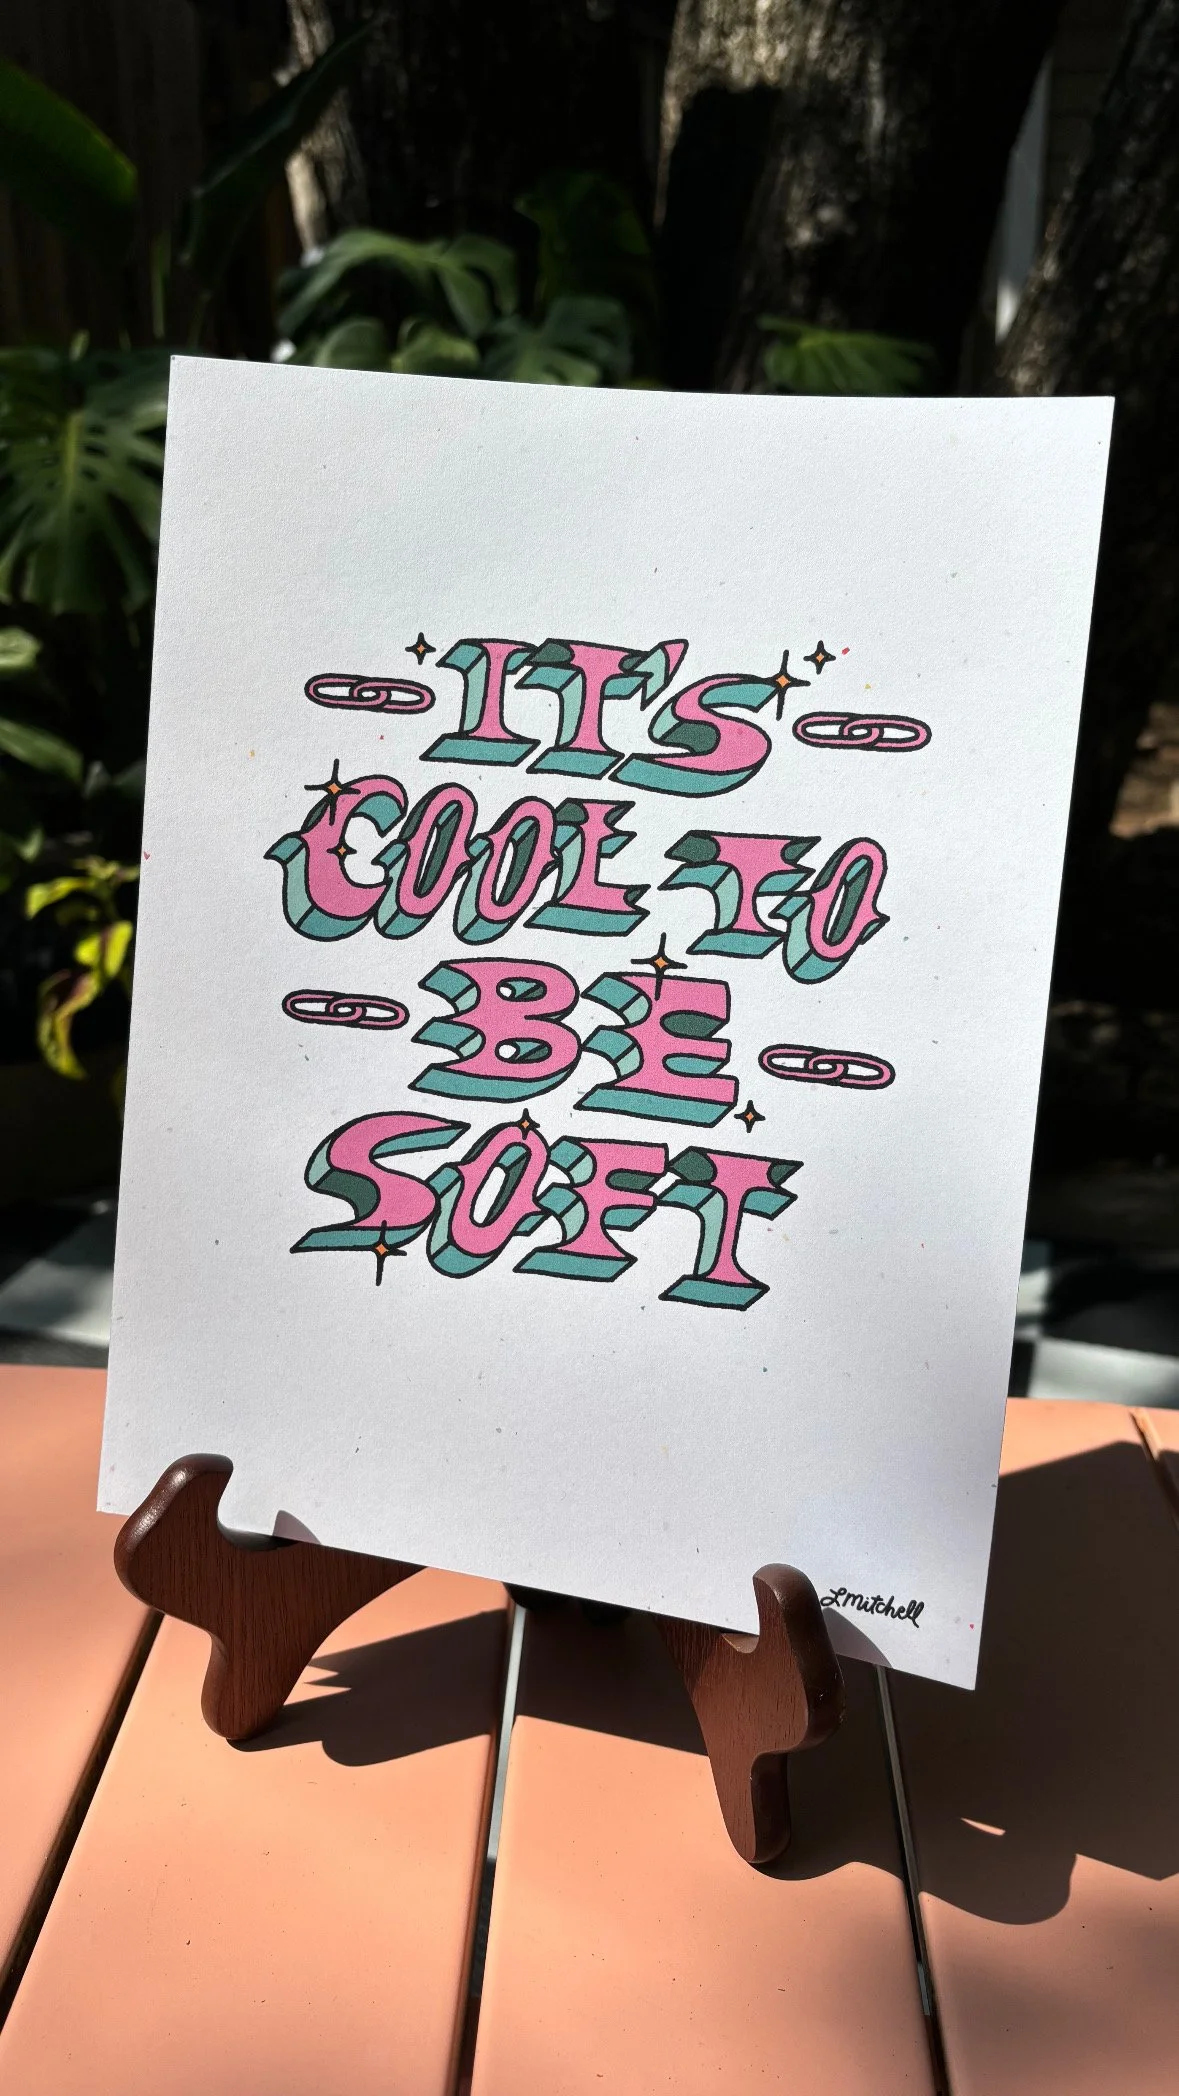 IT'S
COOL TO
BE
SOFT
LMitchell